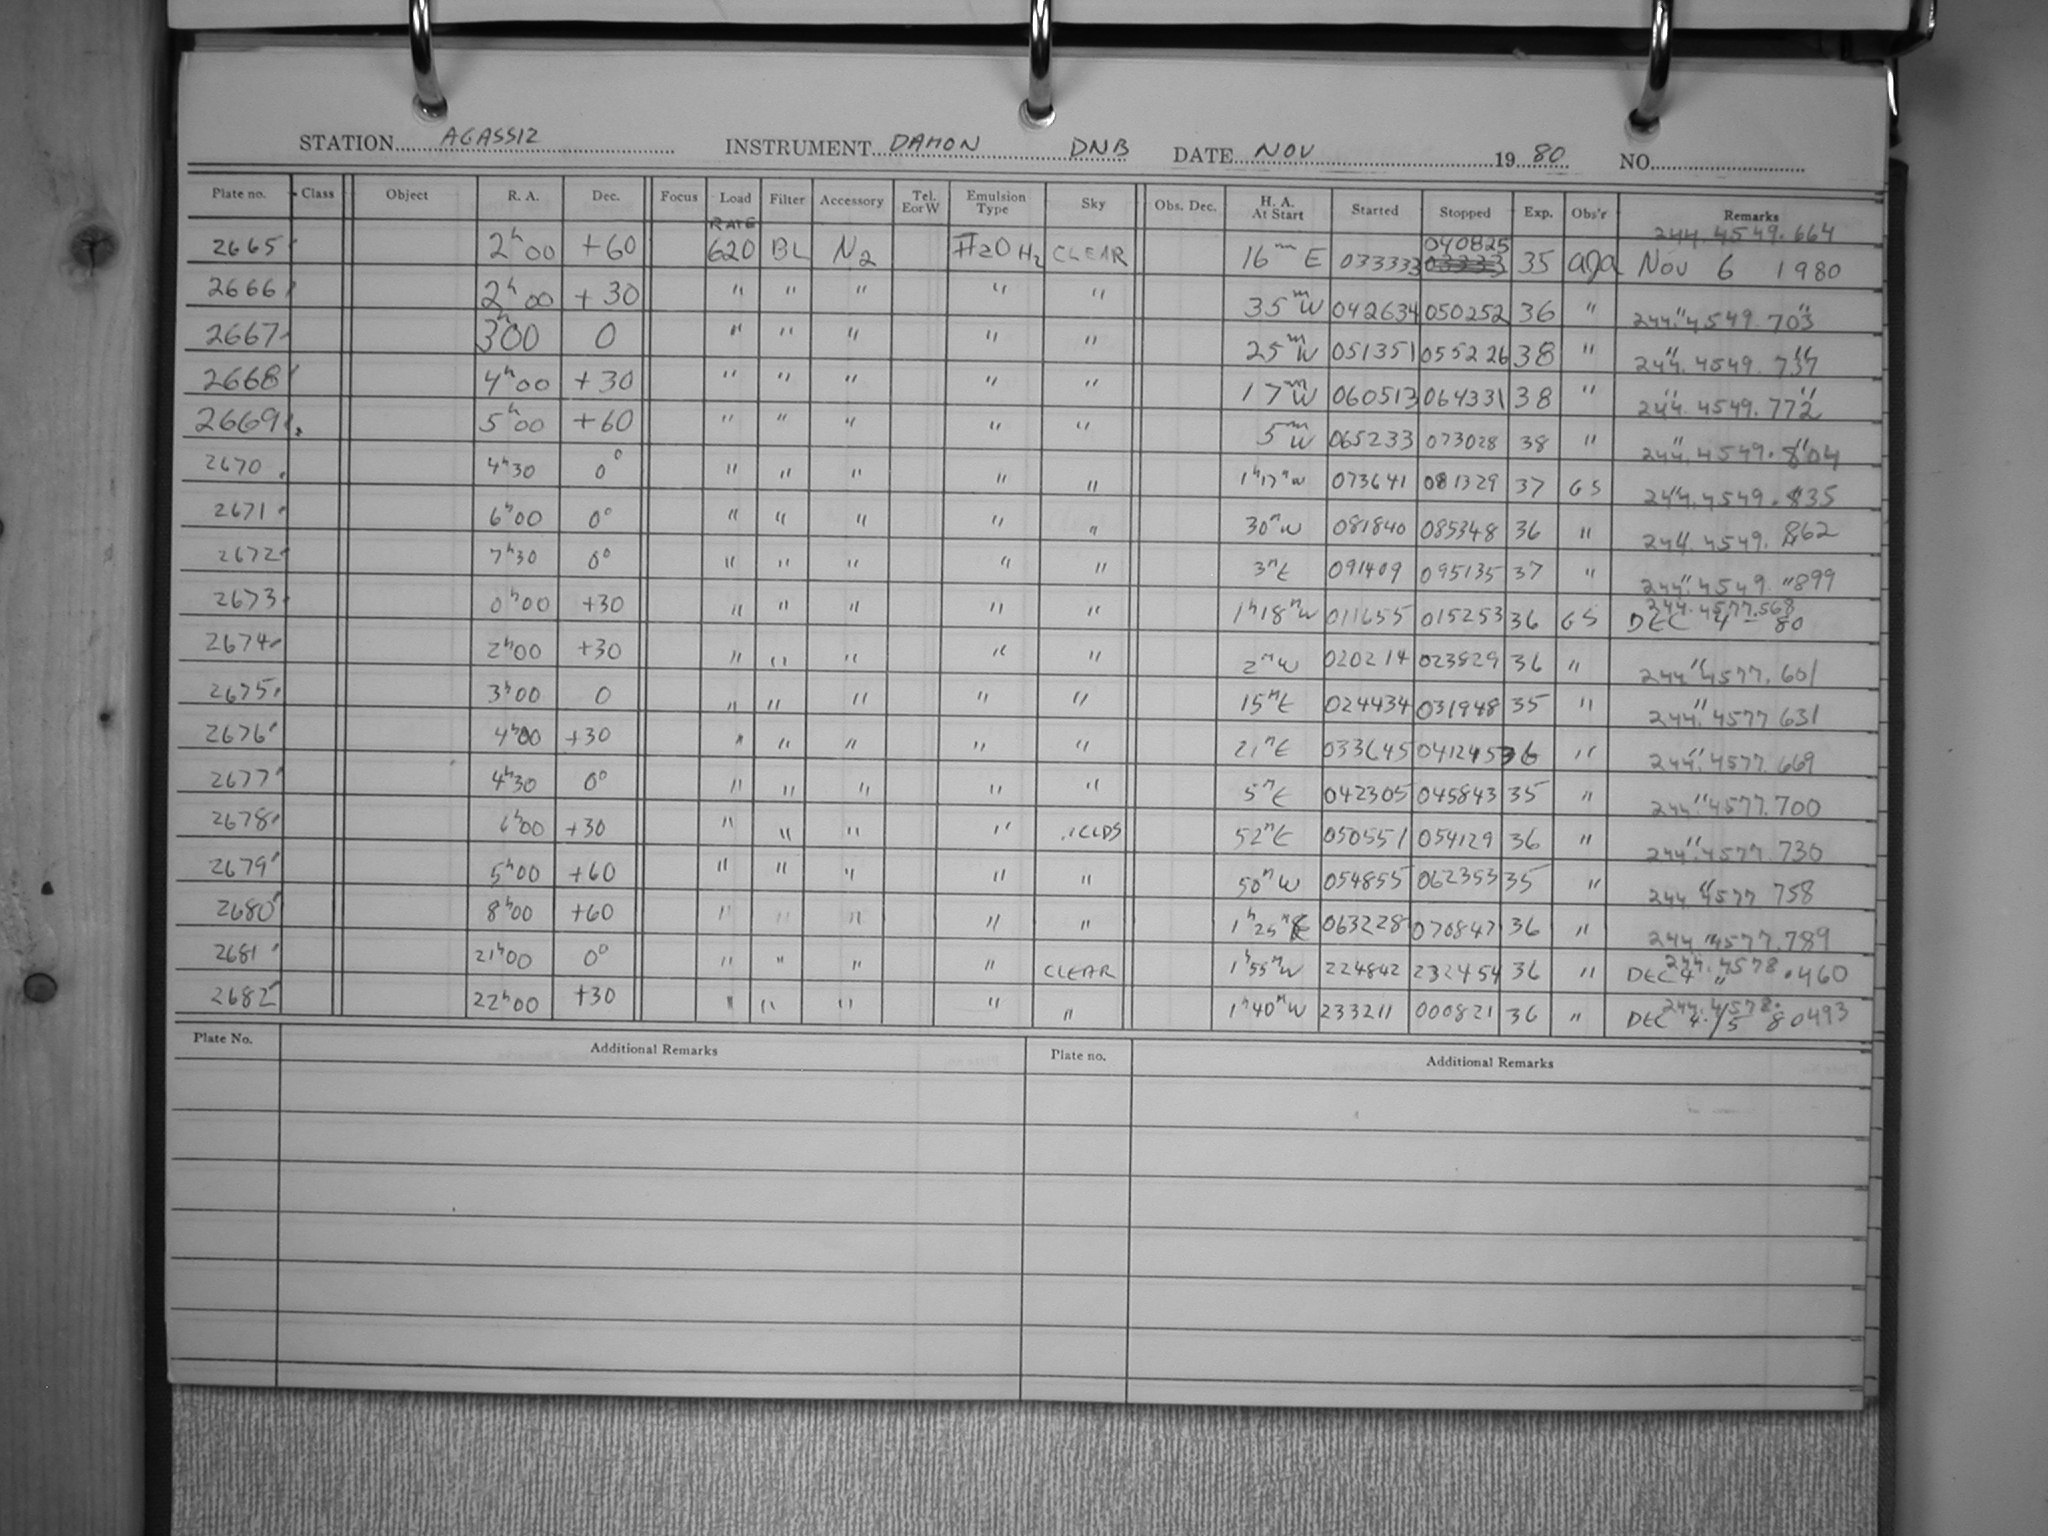 STATION AGASSIZ INSTRUMENT DAMON DNB DATE NOV 19 80 NO.
Plate no. Class Object R. A. Dec. Focus Load Filter Accessory Tel. E or W Emulsion Type Sky Obs. Dec. H. A. At Start Started Stopped Exp. Obs'r Remarks
RATE 040825 244.4549.664
2665 2h00 +60 620 BL N2 H2 CLEAR 16m E 033333 35 Nov 6 1980
2666 2h00 +30 " " " " " 35m W 042634 050252 36 " "
244.4549.703
2667 3h00 0 " " " " " 25m W 051351 055226 38 " "
244.4549.737
2668 4h00 +30 " " " " " 17m W 060513 064331 38 " "
244.4549.772
2669 5h00 +60 " " " " " 5m W 065233 073028 38 " "
244.4549.804
2670 4h30 0° " " " " " 1h17m W 073641 081329 37 GS "
244.4549.835
2671 6h00 0° " " " " " 30m W 081840 085348 36 " "
244.4549.862
2672 7h30 0° " " " " " 3m E 091409 095135 37 " "
244.4549.899
244.4577.568
2673 0h00 +30 " " " " " 1h18m W 011655 015253 36 GS DEC 4 - 80
2674 2h00 +30 " " " " " 2m W 020214 023829 36 " "
244.4577.601
2675 3h00 0 " " " " " 15m E 024434 031948 35 " "
244.4577 631
2676 4h00 +30 " " " " " 21m E 033645 041245 36 " "
244.4577.669
2677 4h30 0° " " " " " 5m E 042305 045843 35 " "
244.4577.700
2678 6h00 +30 " " " " " CLDS 52m E 050551 054129 36 " "
244.4577.730
2679 5h00 +60 " " " " " 50m W 054855 062353 35 " "
244.4577 758
2680 8h00 +60 " " " " " 1h25m E 063228 070847 36 " "
244.4577.789
2681 21h00 0° " " " " CLEAR 1h55m W 224842 232454 36 " DEC 4 " 244.4578.460
2682 22h00 +30 " " " " " 1h40m W 233211 000821 36 " DEC 4/5 80 244.4578.493
Plate No. Additional Remarks Plate no. Additional Remarks